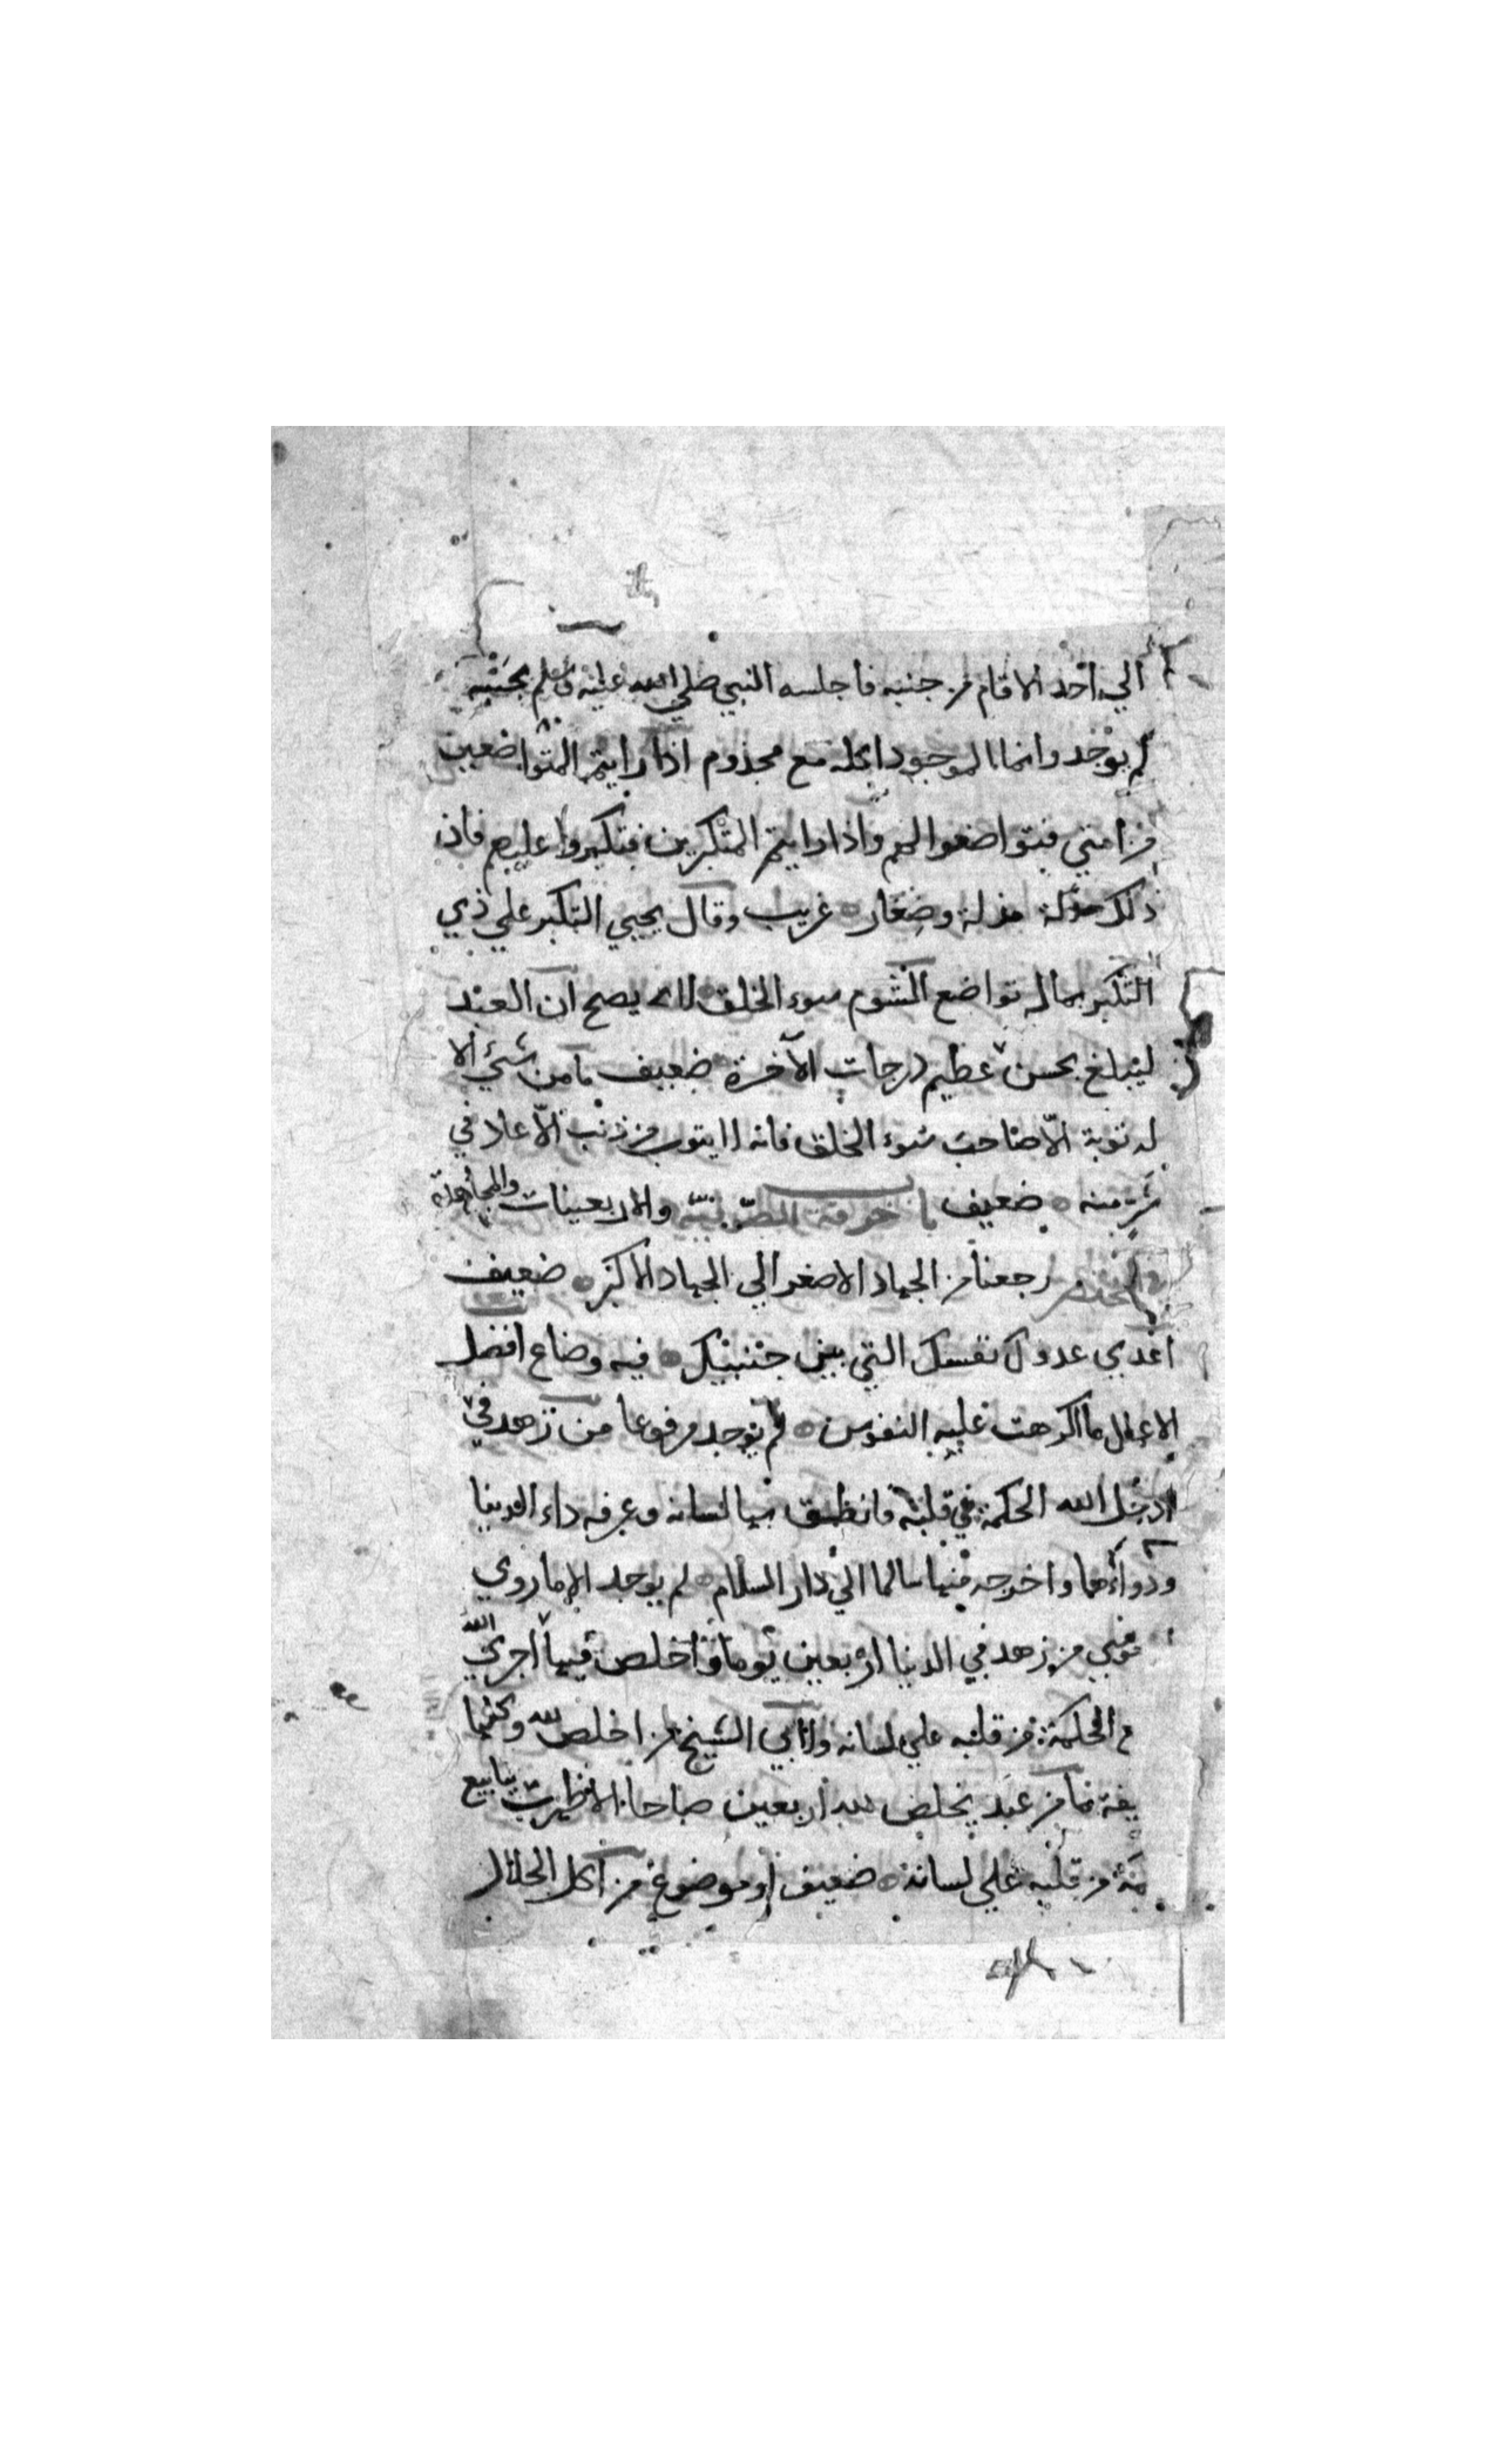 الي احد الا قام من جنبه فاجلسه النبي صلي الله عليه وسلم بجنبه
لم يوجد وانما الموجود اكله مع مجذوم اذا رايتم المتواضعين
من امتي فتواضعوا لهم واذا رايتم المتكبرين فتكبروا عليهم فان
ذلك مذلة وصغار غريب وقال يحيي التكبر علي ذي
التكبر بماله تواضع الشوم سوء الخلق لا يصح ان العبد
ليبلغ بحسن عظيم درجات الآخرة ضعيف ما من شيء الا
له توبة الا صاحب سوء الخلق فانه لا يتوب من ذنب الا عاد في
شر منه ضعيف باب خرقة الصوفية والاربعينات والمجاهدة
رجعنا من الجهاد الاصغر الي الجهاد الاكبر ضعيف
اعدي عدوك نفسك التي بين جنبيك فيه وضاع افضل
الاعمال ما اكرهت عليه النفوس لم يوجد مرفوعا من زهد في
ادخل الله الحكمة في قلبه فانطق بها لسانه وعرفه داء الدنيا
ودواءها واخرجه منها سالما الي دار السلام لم يوجد الا ما روي
من زهد في الدنيا اربعين يوما واخلص فيها اجري الله
الحكمة من قلبه علي لسانه ولابي الشيخ من اخلص لله
ما من عبد يخلص لله اربعين صباحا الا ظهرت ينابيع
من قلبه علي لسانه ضعيف او موضوع من اكل الحلال